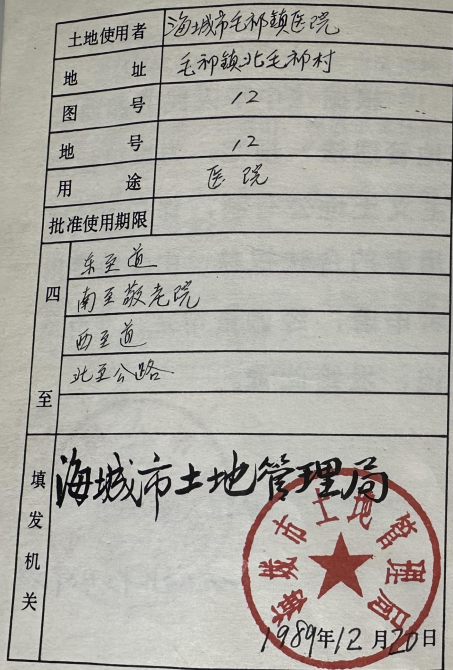 土地使用者 海城市毛祁鎮医院
地址 毛祁鎮北毛祁村
图号 12
地号 12
用途 医院
批准使用期限
四至
东至道
南至敬老院
西至道
北至公路
填发机关
海城市土地管理局
海城市土地管理局
1989年12月20日